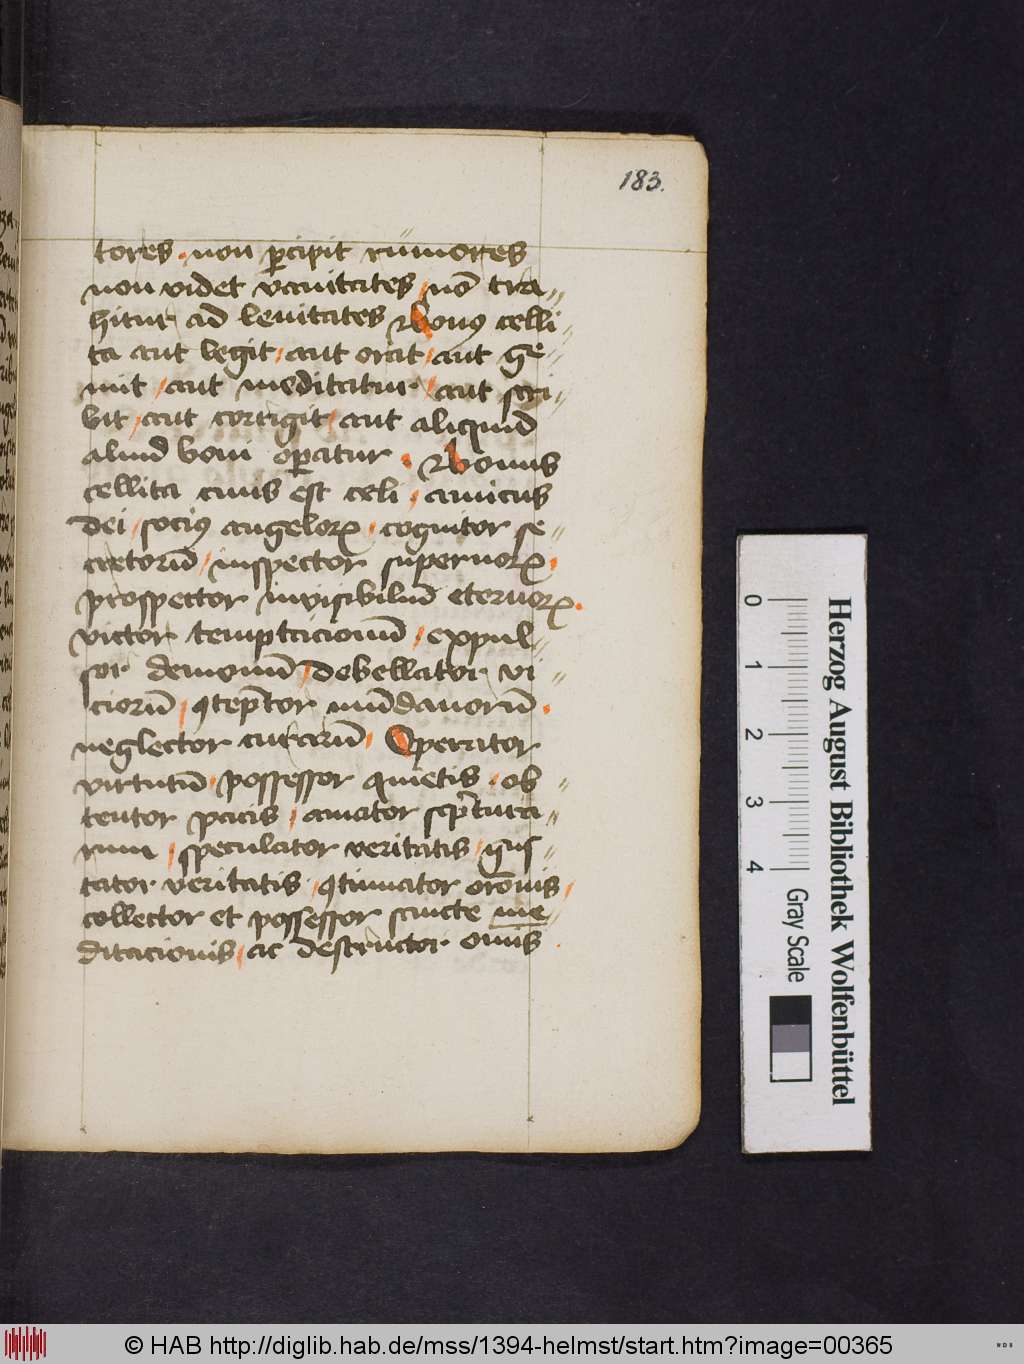 183.
tores . non ꝑcipit rumores
non videt vanitates / nō tra⸗
hitur ad levitates Bonꝰ celli⸗
ta aut legit / aut orat / aut ge⸗
mit / aut meditatur / aut scri⸗
bit / aut corrigit / aut aliquid
aliud boni oꝑatur . Bonus
cellita civis est celi / amicus
dei / sociꝰ angeloꝝ / cognitor se⸗
cretorū / inspector supernoꝝ .
prospector invisibiliū eternoꝝ .
victor temptacionū / expul⸗
sor demonū / debellator vi⸗
ciorū / ꝯtēptor mūdanorū .
neglector curarū / Operator
virtutū / possessor quietis / ob⸗
tentor pacis / amator sc̓ptura⸗
rum / speculator veritatis / gus⸗
tator veritatis / ꝯtinuator orōnis /
collector et possessor sancte me⸗
ditacionis / ac destructor om̄is
Herzog August Bibliothek Wolfenbüttel
0 1 2 3 4 Gray Scale
© HAB http://diglib.hab.de/mss/1394-helmst/start.htm?image=00365